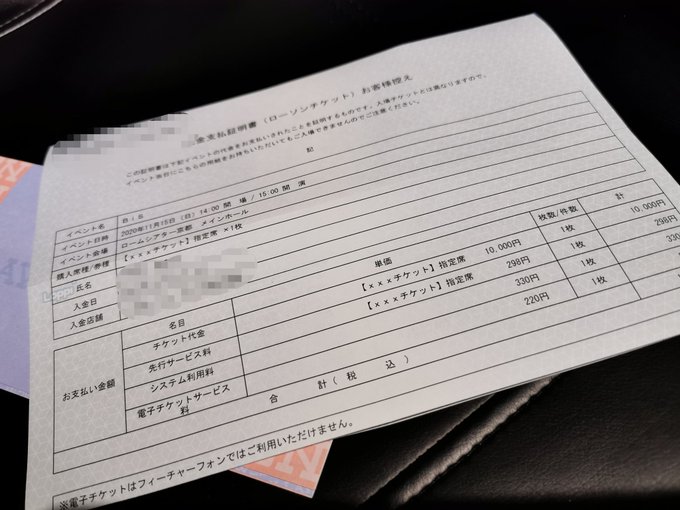 金支払証明書（ローソンチケット）お客様控え
この証明書は下記イベントの代金をお支払いされたことを証明するものです。入場チケットとは異なりますので、
イベント当日にこちらの用紙をお持ちいただいてもご入場できませんのでご注意ください。
記
イベント名 BiS
イベント日時 2020年11月15日（日）14:00 開 場 / 15:00 開 演
イベント会場 ロームシアター京都 メインホール
購入席種/券種 【×××チケット】指定席 ×1枚
氏名
入金日
入金店舗
お支払い金額
名目 単価 枚数/件数 計
チケット代金 【×××チケット】指定席 10,000円 1枚 10,000円
先行サービス料 【×××チケット】指定席 298円 1枚 298円
システム利用料 330円 1枚 330
電子チケットサービス料 220円 1枚
合 計（ 税 込 ）
※電子チケットはフィーチャーフォンではご利用いただけません。
Loppi